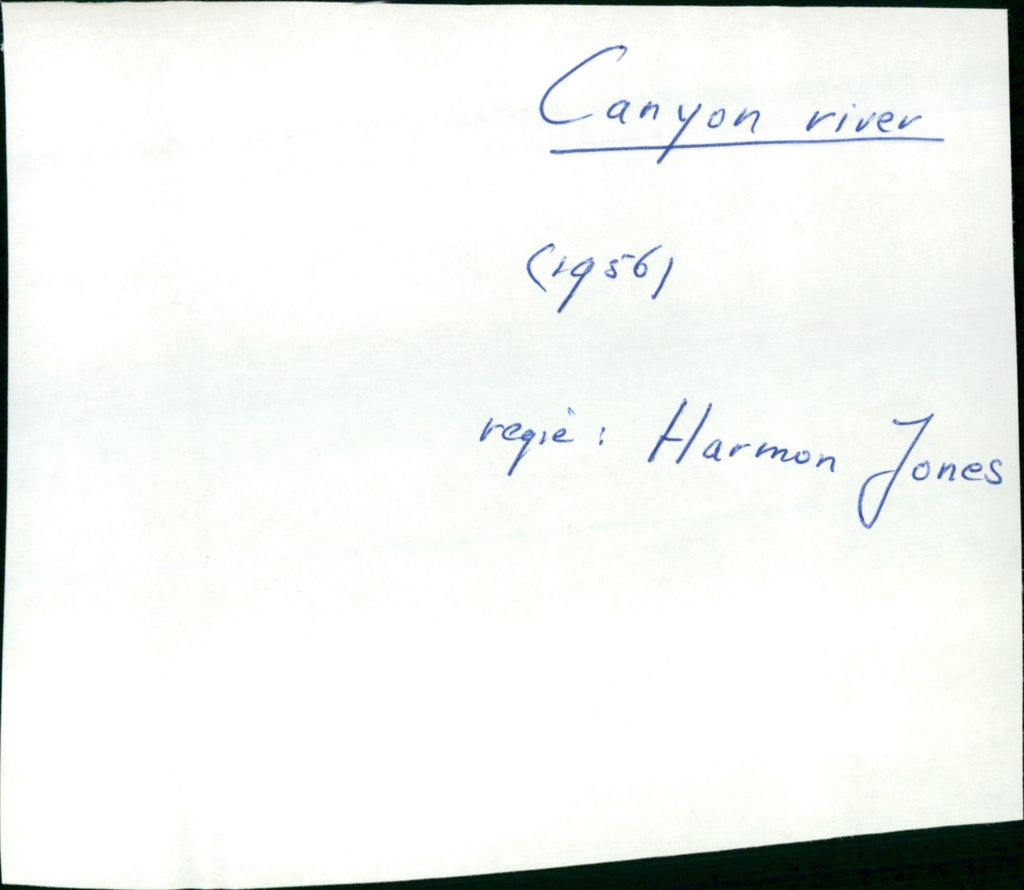 Canyon river
(1956)
regie: Harmon Jones